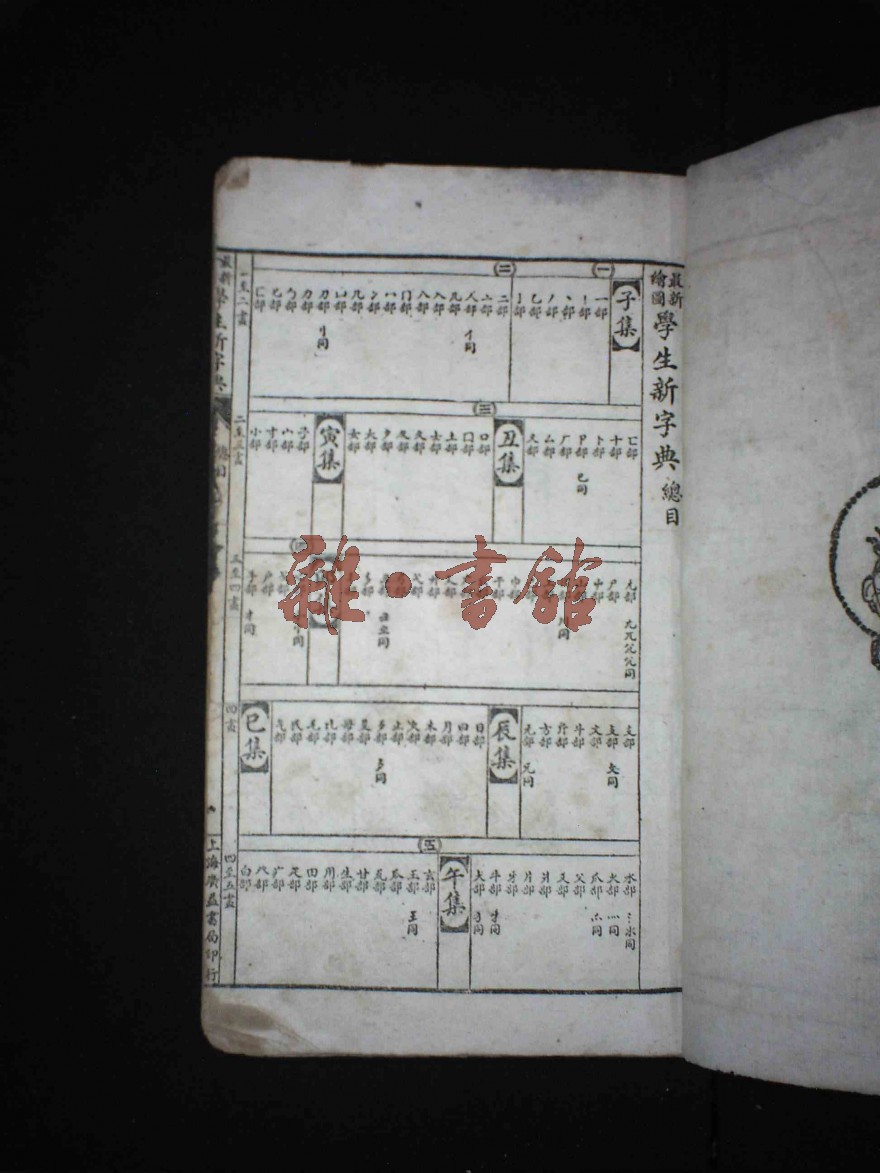 最新繪圖學生新字典 總目
子集
㊀
一部 丨部 丶部 丿部 乙部 亅部
㊁
二部 亠部 人部 亻同 儿部 入部 八部 冂部 冖部 冫部 几部 凵部 刀部 刂同 力部 勹部 匕部 匚部
匸部 十部 卜部 卩部 㔾同 厂部 厶部 又部
丑集
㊂
口部 囗部 土部 士部 夂部 夊部 夕部 大部 女部
寅集
子部 宀部 寸部 小部
尢部
尸部 屮部
巾部 干部
彐同
㊃
戶部 手部 扌同
支部 攴部 攵同 文部 斗部 斤部 方部 无部 旡同
辰集
日部 曰部 月部 木部 欠部 止部 歹部 歺同 殳部 毋部 比部 毛部 氏部 气部
巳集
水部 氵氺同 火部 灬同 爪部 爫同 父部 爻部 爿部 片部 牙部 牛部 牜同 犬部 犭同
午集
㊄
玄部 玉部 王同 瓜部 瓦部 甘部 生部 用部 田部 疋部 疒部 癶部 白部
最新學生新字典
總目
一至二畫
二至三畫
三至四畫
四畫
四至五畫
上海廣益書局印行
雜·書館